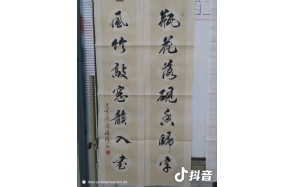 瓶花落硯香歸字
風竹敲窓韻入書
抖音